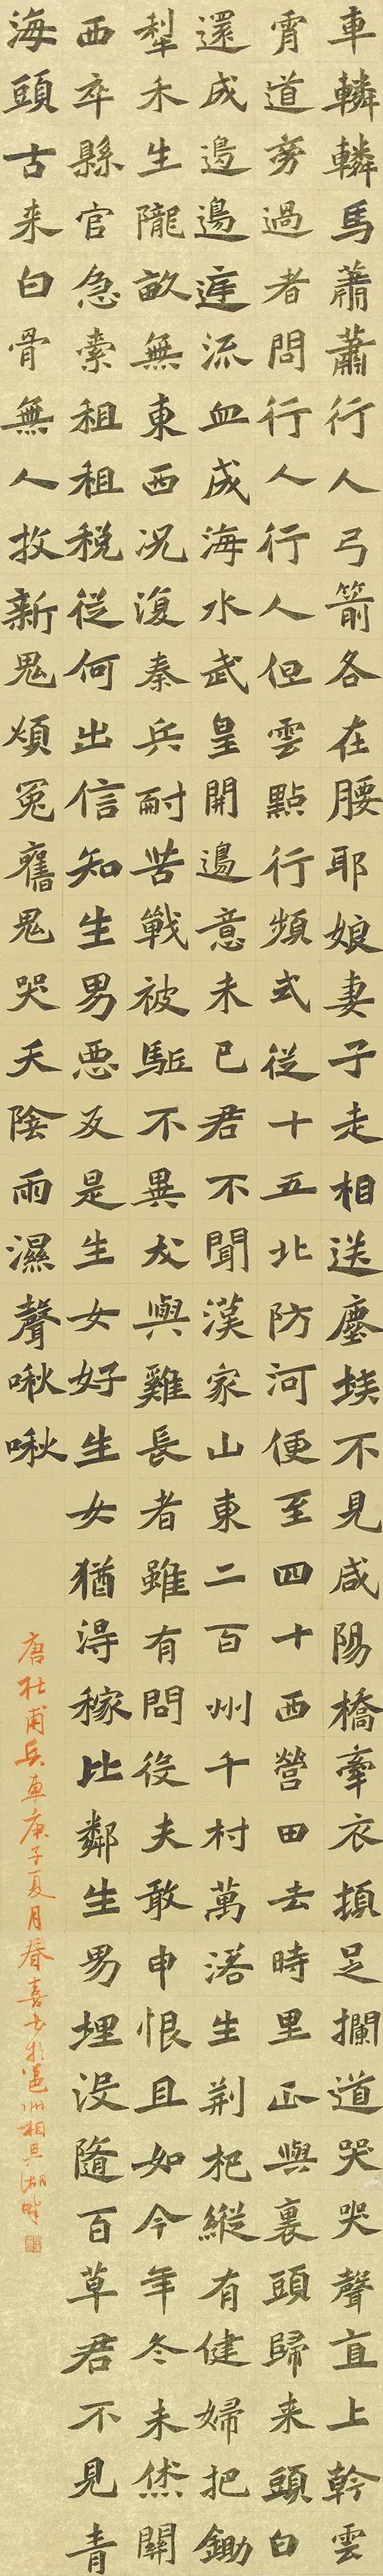 車轔轔馬蕭蕭行人弓箭各在腰耶娘妻子走相送塵埃不見咸陽橋牽衣頓足攔道哭哭聲直上幹雲
霄道旁過者問行人行人但雲點行頻或從十五北防河便至四十西營田去時里正與裹頭歸来頭白
還戍邊邊庭流血成海水武皇開邊意未已君不聞漢家山東二百州千村萬落生荆杞縱有健婦把鋤
犁禾生隴畝無東西况復秦兵耐苦戰被驅不異犬與雞長者雖有問役夫敢申恨且如今年冬未休關
西卒縣官急索租租税從何出信知生男惡反是生女好生女猶得嫁比鄰生男埋没隨百草君不見青
海頭古来白骨無人收新鬼煩冤舊鬼哭天陰雨濕聲啾啾
唐杜甫兵車庚子夏月春喜書於邕州相思湖畔